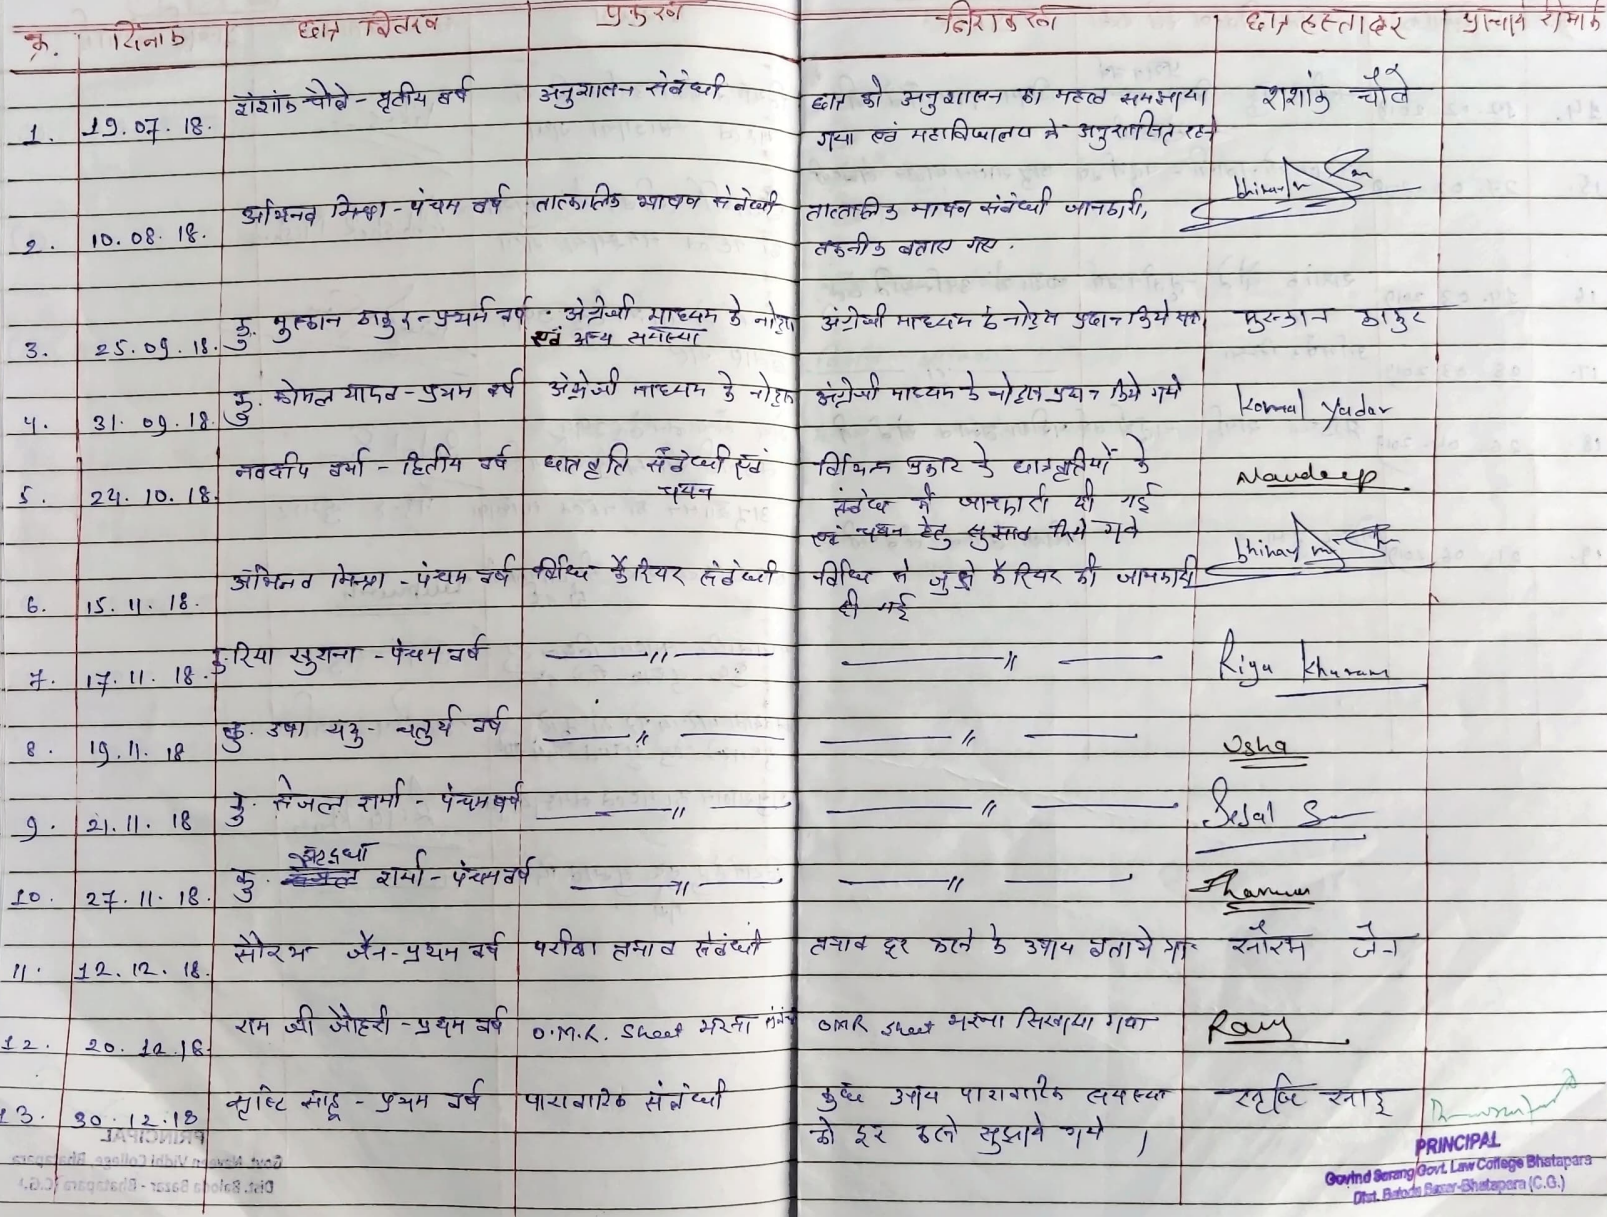 क्र. दिनांक छात्र विवरण प्रकरण निराकरण छात्र हस्ताक्षर प्राचार्य रिमार्क
1. 19.07.18. शशांक चौबे - तृतीय वर्ष अनुशासन संबंधी छात्र को अनुशासन का महत्व समझाया शशांक चौबे
गया एवं महाविद्यालय में अनुशासित रहने
2. 10.08.18. अभिनव मिश्रा - पंचम वर्ष तात्कालिक भाषण संबंधी तात्कालिक भाषण संबंधी जानकारी,
तकनीक बताए गए.
3. 25.09.18. कु. मुस्कान ठाकुर - प्रथम वर्ष अंग्रेजी माध्यम के नोट्स अंग्रेजी माध्यम के नोट्स प्रदान किये गए मुस्कान ठाकुर
एवं अन्य समस्या
4. 31.09.18. कु. कोमल यादव - प्रथम वर्ष अंग्रेजी माध्यम के नोट्स अंग्रेजी माध्यम के नोट्स प्रदान किये गये Komal Yadav
5. 24.10.18. नवदीप वर्मा - द्वितीय वर्ष छात्रवृत्ति संबंधी एवं विभिन्न प्रकार के छात्रवृत्तियों के Navdeep
चयन संबंध में जानकारी दी गई
एवं चयन हेतु सुझाव दिये गये
6. 15.11.18. अभिनव मिश्रा - पंचम वर्ष विधि कैरियर संबंधी विधि से जुड़े कैरियर की जानकारी
दी गई
7. 17.11.18. कु. रिया खुराना - पंचम वर्ष — " — — " — Riya Khurana
8. 19.11.18 कु. उषा यदु - चतुर्थ वर्ष — " — — " — Usha
9. 21.11.18 कु. सेजल शर्मा - पंचम वर्ष — " — — " — Sejal
10. 27.11.18. कु. शर्मा - पंचम वर्ष — " — — " —
11. 12.12.18. सौरभ जैन - प्रथम वर्ष परीक्षा तनाव संबंधी तनाव दूर करने के उपाय बताये गए सौरभ जैन
12. 20.12.18. राम जी जौहरी - प्रथम वर्ष O.M.R. Sheet भरना संबंधी OMR Sheet भरना सिखाया गया
13. 30.12.18 सृष्टि साहू - प्रथम वर्ष पारावारिक संबंधी कुछ उपाय पारावारिक समस्या सृष्टि साहू
को दूर करने सुझाये गये।
PRINCIPAL
Govind Sarang Govt. Law College Bhatapara
Dist. Baloda Bazar-Bhatapara (C.G.)